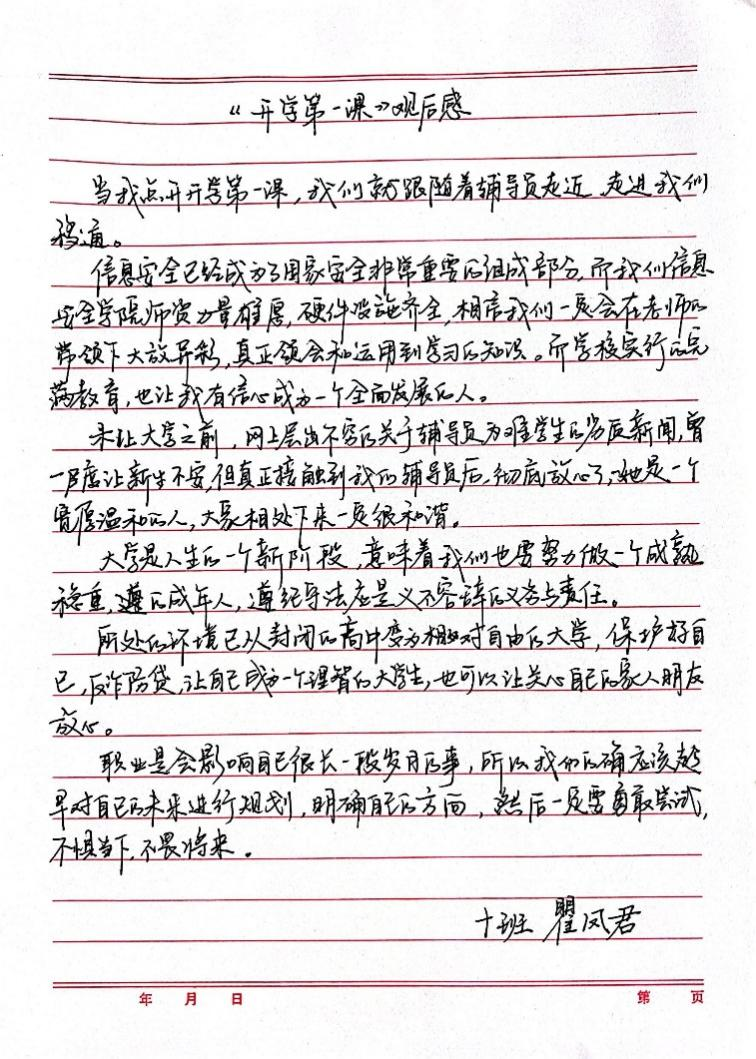 “开学第一课”观后感
当我点开开学第一课，我们就跟随着辅导员走近，走进我们
鸦通。
信息安全已经成为了国家安全非常重要的组成部分，而我们信息
安全学院师资力量雄厚，硬件设施齐全，相信我们一定会在老师的
带领下大放异彩，真正领会和运用到学习的知识。而学校实行的完
满教育，也让我有信心成为一个全面发展的人。
未让大学之前，网上层出不穷的关于辅导员为难学生的劣质新闻，曾
一度让新生不安，但真正接触到我的辅导员后，彻底放心了，她是一个
宽厚温和的人，大家相处下来一定很和谐。
大学是人生的一个新阶段，意味着我们也要努力做一个成熟
稳重，遵的成年人，遵纪守法应是义不容辞的义务与责任。
所处的环境已从封闭的高中变为相对自由的大学，保护好自
己，反诈防贷，让自己成为一个理智的大学生，也可以让关心自己的家人朋友
放心。
职业是会影响自己很长一段岁月的事，所以我们的确应该趁
早对自己的未来进行规划，明确自己的方面，然后一定要勇敢尝试，
不惧当下，不畏将来。
十班 瞿凤君
年 月 日
第 页